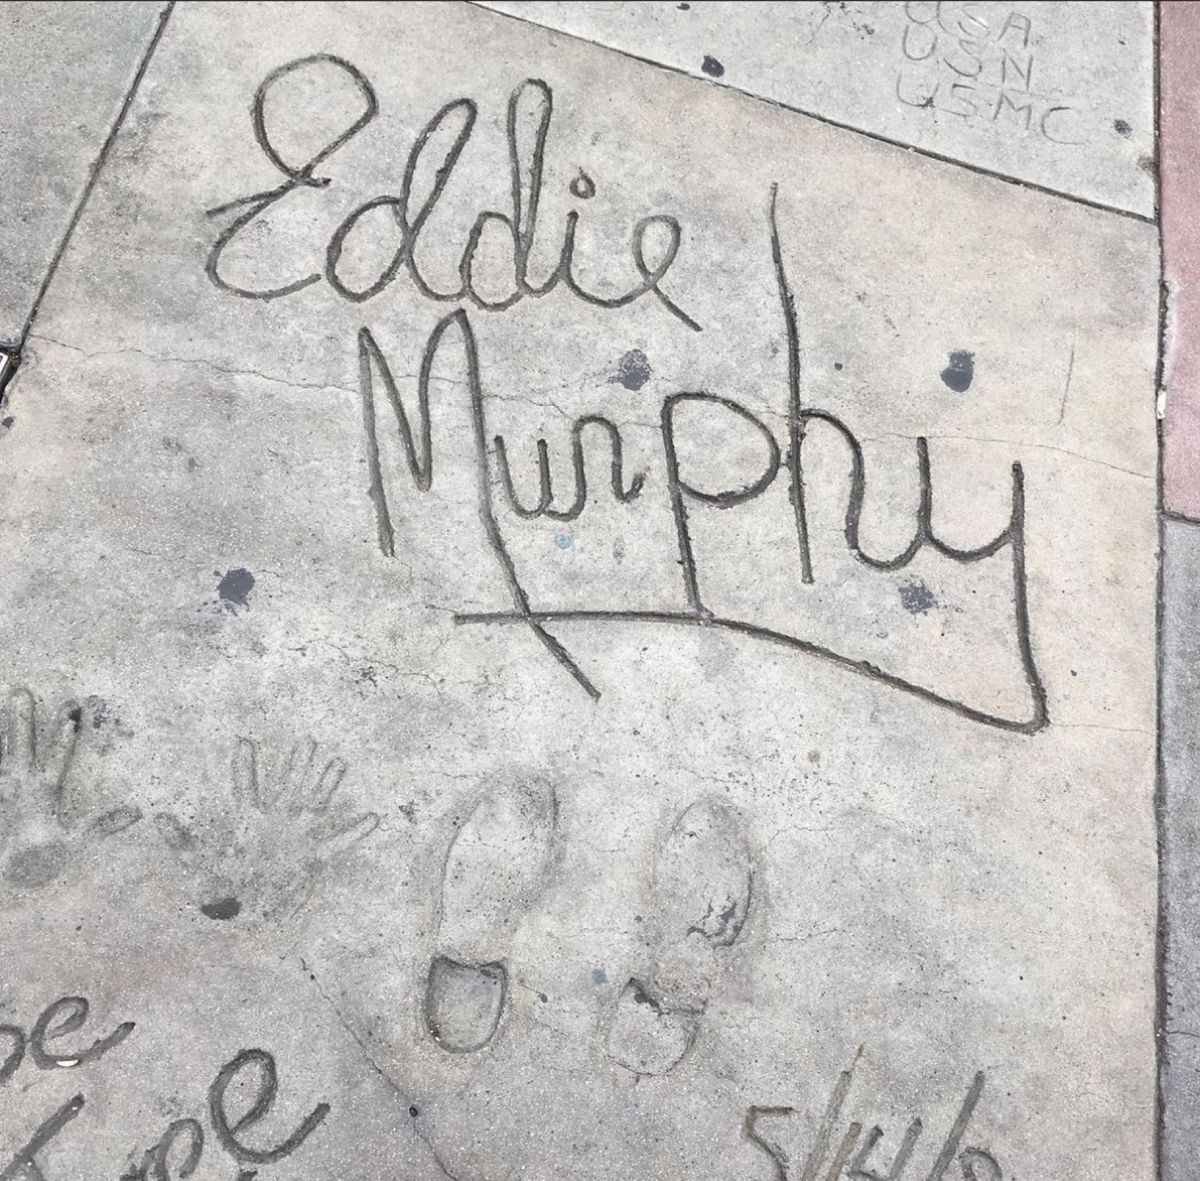 USA
USN
USMC
Eddie
Murphy
5/14/